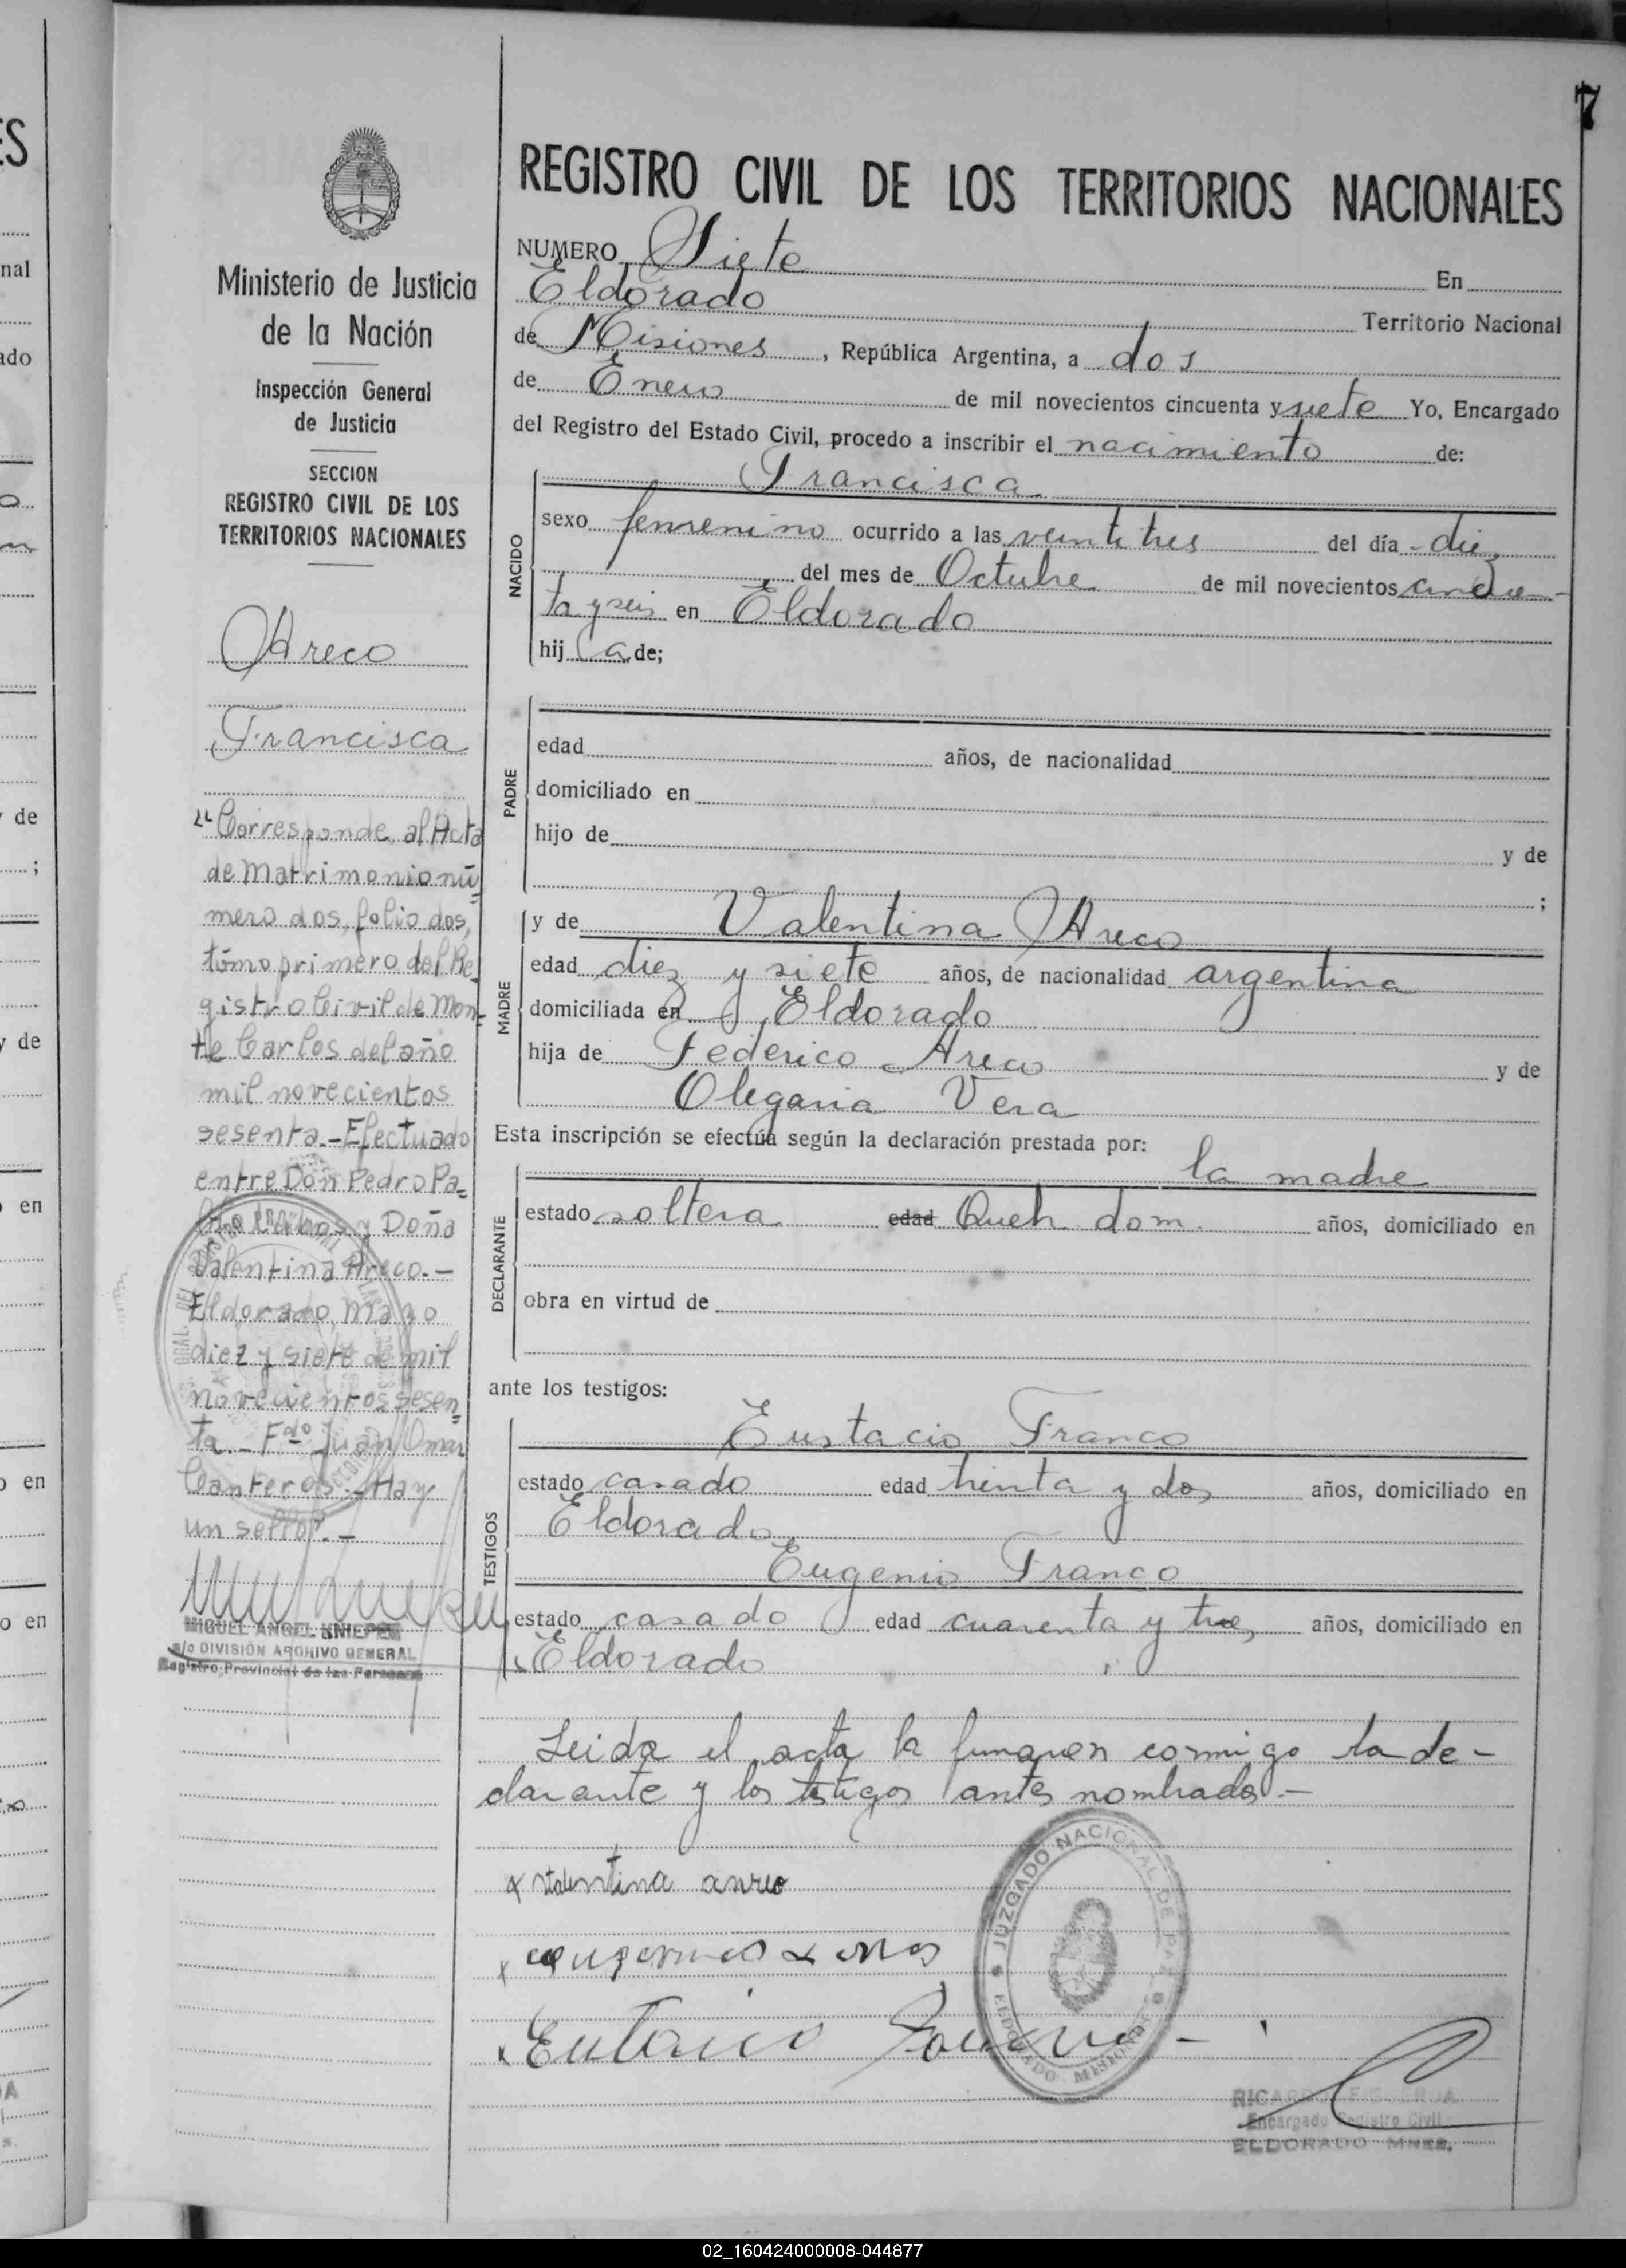 7
REGISTRO CIVIL DE LOS TERRITORIOS NACIONALES
Ministerio de Justicia
de la Nación
Inspección General
de Justicia
SECCION
REGISTRO CIVIL DE LOS
TERRITORIOS NACIONALES
Areco
Francisca
"Corresponde al Acta
de Matrimonio nú-
mero dos, folio dos,
tomo primero del Re-
gistro Civil de Mon-
te Carlos del año
mil novecientos
sesenta.-Efectuado
entre Don Pedro Pa-
y Doña
Valentina Areco.-
Eldorado, Mayo
diez y siete de mil
novecientos sesen-
ta.- Fdo Juan Omar
Canteros.- Hay
un sello".-
MIGUEL ANGEL KNIEPE
a/c DIVISIÓN ARCHIVO GENERAL
Registro Provincial de las Personas
NUMERO Siete En
Eldorado Territorio Nacional
de Misiones, República Argentina, a dos
de Enero de mil novecientos cincuenta y siete Yo, Encargado
del Registro del Estado Civil, procedo a inscribir el nacimiento de:
NACIDO
Francisca
sexo femenino ocurrido a las veintitres del día diez
del mes de Octubre de mil novecientos cincuen-
ta y seis en Eldorado
hij a de;
PADRE
edad años, de nacionalidad
domiciliado en
hijo de y de
;
MADRE
y de Valentina Areco
edad diez y siete años, de nacionalidad argentina
domiciliada en Eldorado
hija de Federico Areco y de
Olegaria Vera
Esta inscripción se efectúa según la declaración prestada por:
DECLARANTE
la madre
estado soltera edad dom. años, domiciliado en
obra en virtud de
ante los testigos:
TESTIGOS
Eustacio Franco
estado casado edad treinta y dos años, domiciliado en
Eldorado
Eugenio Franco
estado casado edad cuarenta y tres años, domiciliado en
Eldorado
Leida el acta la firmaron conmigo la de-
clarante y los testigos antes nombrados.-
x Valentina areco
JUZGADO NACIONAL DE PAZ
ELDORADO MISIONES
Encargado Registro Civil
ELDORADO MNES.
02_160424000008-044877